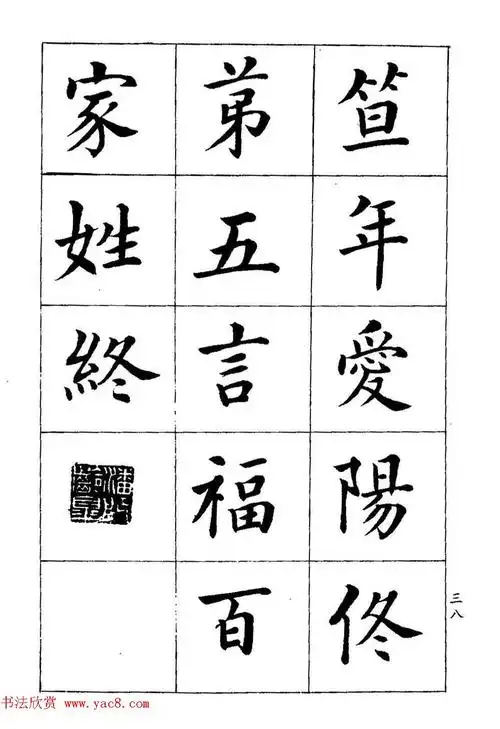 笪年愛陽佟
苐五言福百
家姓終
三八
书法欣赏 www.yac8.com